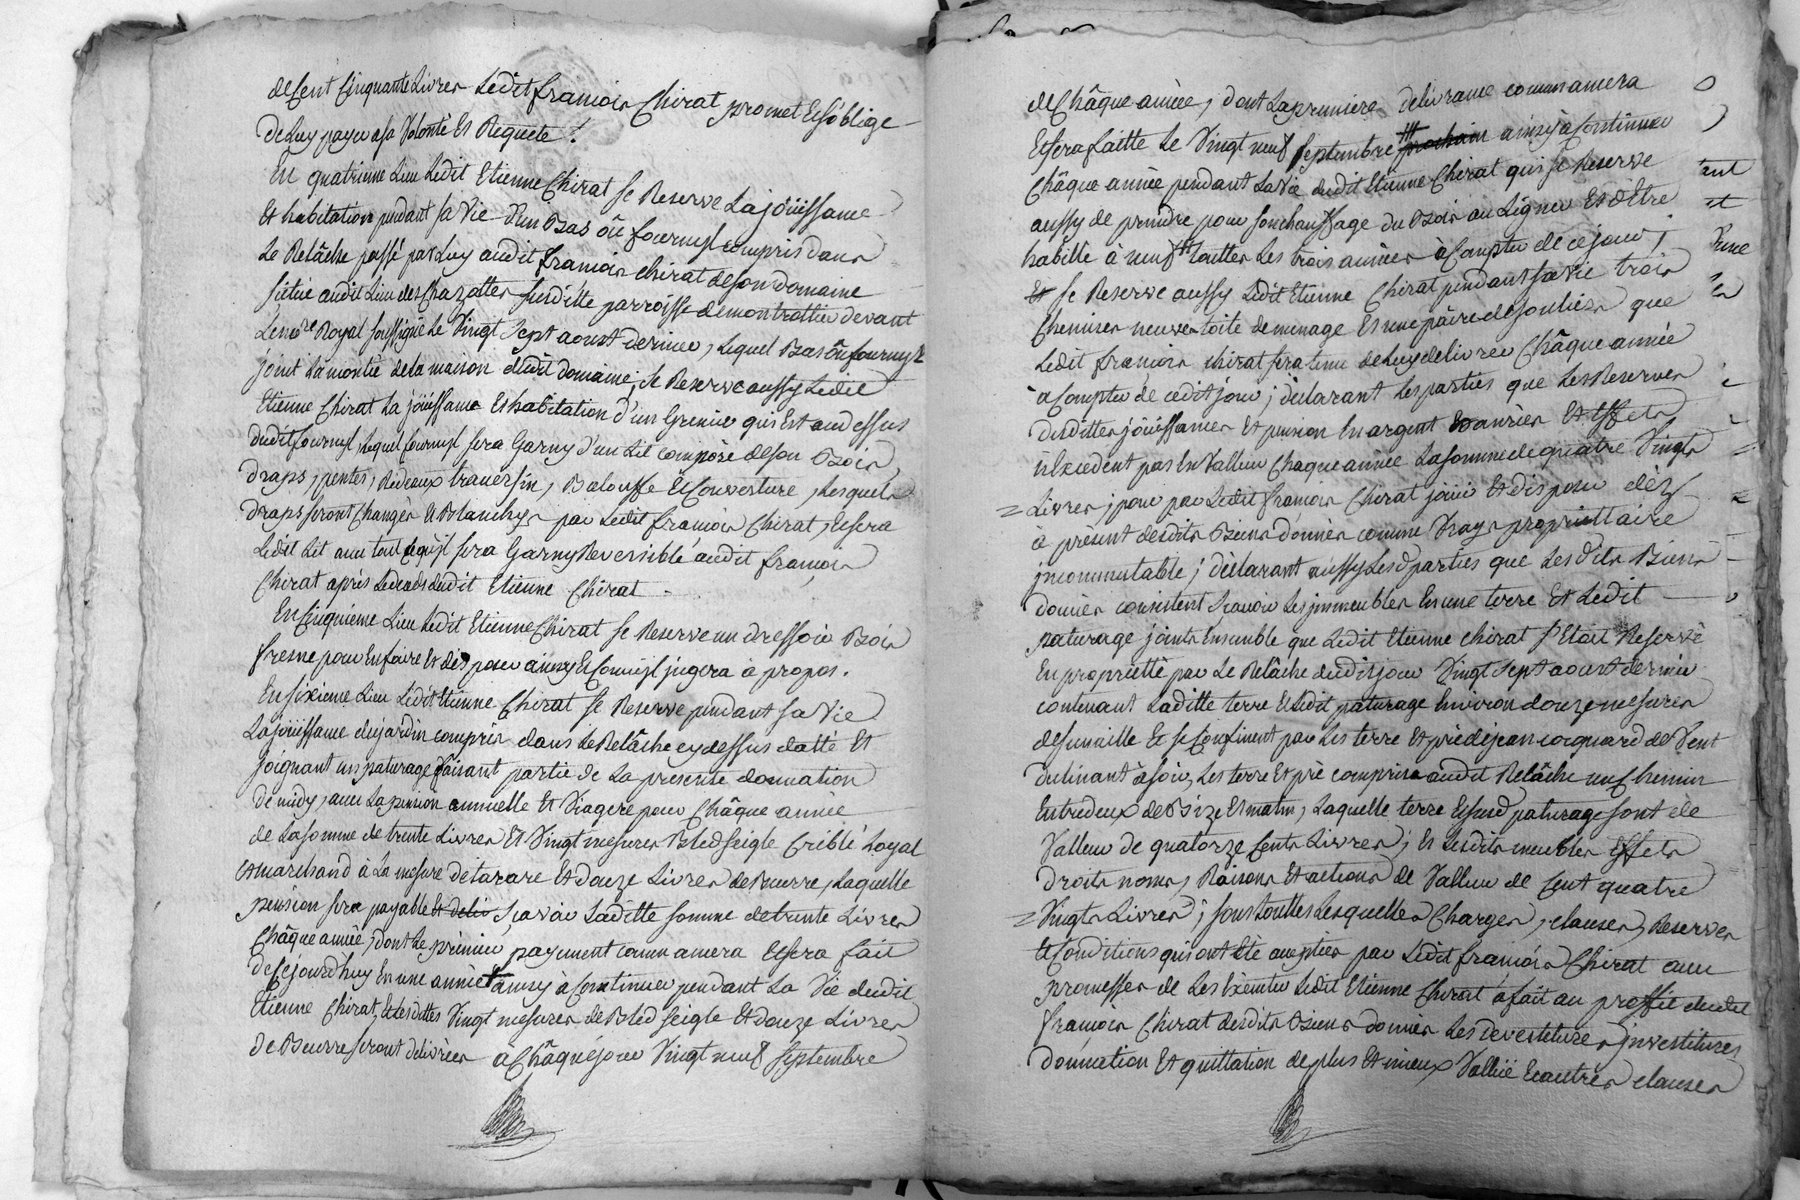 de Cent Cinquante Livres Ledit françois Chirat promet Et s'oblige
de Luy payer a sa Volonté Et Requete !
En quatrieme Lieu Ledit Etienne Chirat se Reserve La joüissance
Et habitation pendant sa Vie d'un Bas ou fournyl compris dans
Le Relâche passé par Luy audit françois chirat de son domaine
sictué audit Lieu des Chazottes susditte parroisse de montrottier devant
Le no.re Royal soussigné Le Vingt Sept aoust dernier, Lequel Bas ou fournyl
joint La moitié de la maison dudit domaine; se Reserve aussy Ledit
Etienne Chirat La joüissance Et habitation d'un Grenier qui Est au dessus
dudit fournyl, Lequel fournyl sera Garny d'un Lit composé de son Bois
draps, pentes, Rideaux traversin, Balouffe Et Couverture, Lesquels
draps seront Changés Et Blanchys par Ledit françois Chirat, Et sera
Ledit Lit avec tout ce qu'jl sera Garny Reversible audit françois
Chirat après Le decès dudit Etienne Chirat
En Cinquieme Lieu Ledit Etienne Chirat se Reserve un dressoir Bois
fresne pour En faire Et disposer ainsy Et Comme jl jugera à propos.
En sixieme Lieu Ledit Etienne Chirat se Reserve pendant sa Vie
La joüissance du jardin compris dans Le Relâche cy dessus datté Et
joignant un paturage faisant partie de La presente donnation
de midy, avec La pension annuelle Et Viagere pour Châque année
de La somme de trente Livres Et Vingt mesures Bled seigle Criblé Loyal
Et marchand à La mesure de tarare Et douze Livres de Beurre, Laquelle
pension sera payable Et deliv Sçavoir Laditte somme de trente Livres
Châque année, dont Le premier payement commancera Et sera fait
de Cejourd'huy En une année ainsy à Continuer pendant La Vie dudit
Etienne Chirat, Et Lesdittes Vingt mesures de Bled seigle Et douze Livres
de Beurre seront delivrées a Châque jour Vingt neuf Septembre
de Châque année, dont La premiere delivrance commancera
Et sera faitte Le Vingt neuf Septembre prochain ainsy à Continuer
Châque année pendant La Vie dudit Etienne Chirat qui se Reserve
aussy de prendre pour son chauffage du Bois au Ligner Et d'Etre
habillé à neuf touttes Les trois années à Compter de ce jour;
Et se Reserve aussy Ledit Etienne Chirat pendant sa Vie trois
Chemises neuves toile de menage Et une paire de souliers que
Ledit françois chirat sera tenu de Luy delivrer Châque année
à Compter de cedit jour; déclarant Les parties que Les Reserves
desdittes joüissances Et pension En argent Danrées Et Effets
n'Excedent pas En Valleur Chaque année La somme de quatre Vingts
Livres; pour par Ledit françois Chirat joüir Et disposer dès
à présent desdits Biens donnés comme Vray propriettaire
jncommutable; déclarant aussy Lesd. parties que Lesdits Biens
donnés consistent Sçavoir Les jmmeubles En une terre Et Ledit
paturage joints Ensemble que Ledit Etienne Chirat s'Etait Reservé
En propriété par Le Relâche dudit jour Vingt Sept aoust dernier
contenant Laditte terre Et Ledit paturage Environ douze mesures
de Semaille Et se Confinent par Les terre Et pré de jean coquard de Vent
declinant à soir, Les terre Et pré compris audit Relâche un Chemin
Entredeux de Bize Et matin, Laquelle terre Et susd. paturage sont de
Valleur de quatorze Cents Livres; Et Lesdits meubles Effets
droits noms, Raisons Et actions de Valleur de Cent quatre
Vingts Livres; sous touttes Lesquelles Charges, clauses, Reserves
Et Conditions qui ont Eté acceptées par Ledit françois Chirat avec
promesses de Les Executer Ledit Etienne Chirat à fait au proffit dudit
françois Chirat desdits Biens donnés Les devestitures jnvestitures
donnation Et quittation de plus Et mieux Vallüe Et autres clauses